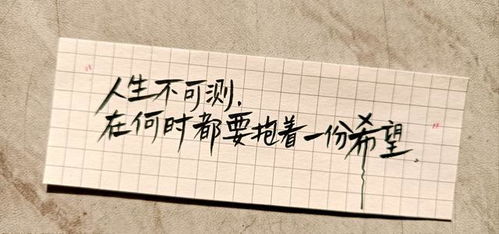 “人生不可测,
在何时都要抱着一份希望.”